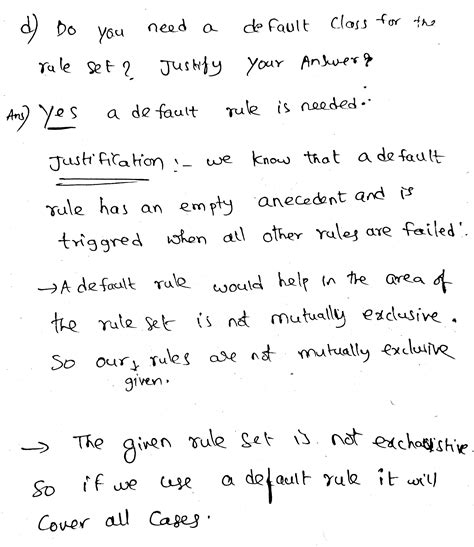 d) Do you need a default class for the
rule set? Justify Your Answer?
Ans) Yes a default rule is needed.
Justification :- we know that a default
rule has an empty anecedent and is
triggred when all other rules are failed.
→ A default rule would help in the area of
the rule set is not mutually exclusive.
So our rules are not mutually exclusive
given.
→ The given rule set is not exchaustive.
So if we use a default rule it will
Cover all Cases.